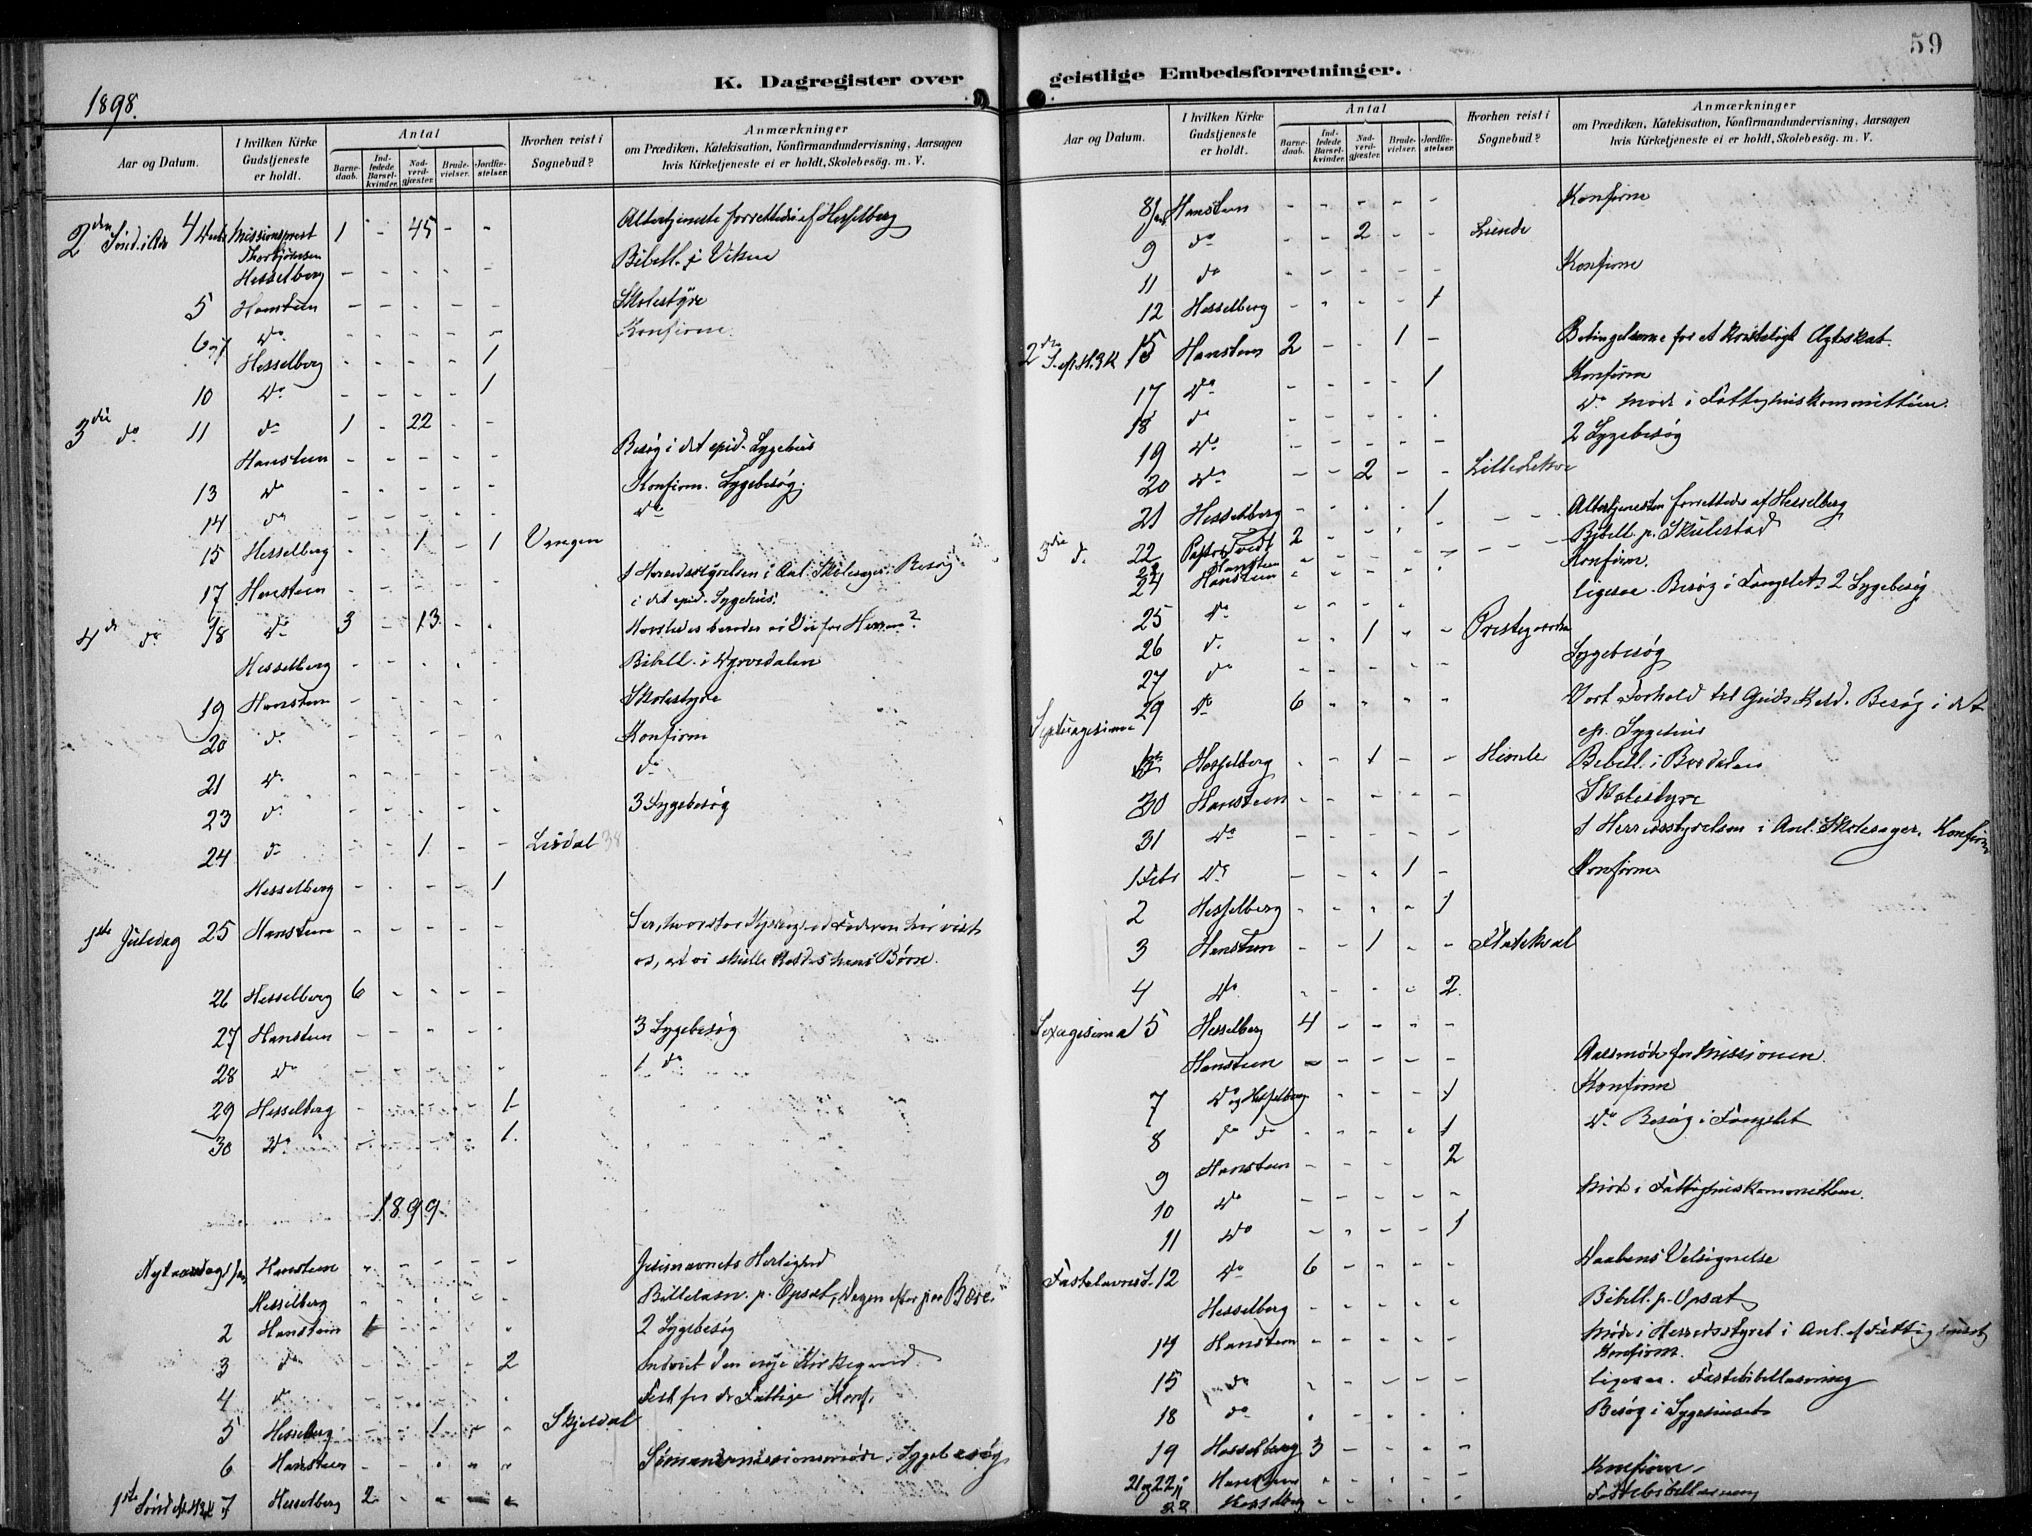 59
K. Dagregister over
1898.
Aar og Datum.
I hvilken Kirke Gudstjeneste er holdt.
Antal
Barne-daab.
Ind-ledede Barsel-kvinder.
Nad-verd-gjæster.
Brude-vielser.
Jordfæ-stelser.
Hvorhen reist i Sognebud?
Anmærkninger
om Prædiken, Katekisation, Konfirmandundervisning, Aarsagen
hvis Kirketjeneste ei er holdt, Skolebesøg. m. V.
2den Sønd. i Adv 4 Missionsprest 1 - 45 - - Altertjeneste forrettedes af Hesselberg
Thorbjørnsen
Hesselberg - - - - - Bibell. i Viken
5 Hansteen - - - - - Skolestyre
6 og 7 do - - - - - Konfirm.
Hesselberg - - - - 1
10 do - - - - 1
3die do 11 do 1 - 22 - -
Hansteen - - - - - Besøg i det epid. Sygehus
13 do - - - - - Konfirm. Sygebesøg.
14 do - - - - - do
15 Hesselberg - - 1 - 1 Vangen
17 Hansteen - - - - - I Herredsstyrelsen i Anl. Skolesager. Besøg
i det epid. Sygehus.
4de do 18 do 3 - 13 - - Hvorledes bereder vi Vei for Herren?
Hesselberg - - - - - Bibell. i Dyrvedalen
19 Hansteen - - - - - Skolestyre
20 do - - - - - Konfirm
21 do - - - - - do
23 do - - - - - 3 Sygebesøg
24 do - - 1 - - Lirdal 38
Hesselberg - - - - 1
1ste Juledag 25 Hansteen - - - - - Ser, hvor stor Kjærlighed Faderen har vist
os, at vi skulle kaldes hans Børn.
26 Hesselberg 6 - - - -
27 Hansteen - - - - - 3 Sygebesøg
28 do - - - - - 1 do
29 Hesselberg - - - - 1
30 do - - - - 1.
1899.
Nytaarsdag 1 Jan Hansteen - - - - - Jesunavnets Herlighed
Hesselberg - - - - - Bibellæsn. p. Opsæt, Dagen efter paa Bøe
2 Hansteen 1 - - - - 2 Sygebesøg
3 do - - - - 2 Indviet den nye Kirkegaard
4 do - - - - - Fest for de Fattige. Konf.
5 Hesselberg - - 1 - - Skjeldal
6 Hansteen - - - - - Sømandsmissionsmøde. Sygebesøg
1ste Sønd. ef. H3K 7 Hesselberg 2 - - - -
geistlige Embedsforretninger.
Aar og Datum.
I hvilken Kirke Gudstjeneste er holdt.
Antal
Barne-daab.
Ind-ledede Barsel-kvinder.
Nad-verd-gjæster.
Brude-vielser.
Jordfæ-stelser.
Hvorhen reist i Sognebud?
Anmærkninger
om Prædiken, Katekisation, Konfirmandundervisning, Aarsagen
hvis Kirketjeneste ei er holdt, Skolebesøg. m. V.
8/ Hansteen - - - - - Konfirm
9 do - - 2 - - Liende
11 do Konfirm
12 Hesselberg - - - - 1
2den S. ef. H.3K 15 Hansteen 2 - - 1 - Betingelserne for et kristeligt Ægteskab.
17 do - - - - 1 Konfirm
18 do - - - - - do Møde i Fattighuskommitteen.
19 do - - - - - 2 Sygebesøg
20 do - - 2 - - Lilletekve
21 Hesselberg - - - - 1 Altertjenesten forrettedes af Hesselberg
3die d. 22 Pastor Tvedt 2 - - - - Bibell. p. Skulestad
Hansteen
24 Hansteen - - - - - Konfirm.
25 do - - - - - ligesaa. Besøg i Fængslet. 2 Sygebesøg
26 d. - - 1 - - Prestegaarden
27 do - - - - - Sygebesøg
Septuagesima 29 do 6 - - - - Vort Forhold til Guds Kald. Besøg i det
ep. Sygehus
Hesselberg - - 1 - - Himle Bibell. i Bordalen
30 Hansteen - - - - - Skolestyre
31 do - - - - - I Herredsstyrelsen i Anl. Skolesager. Konfirm
1 Febr do - - - 1 - Konfirm
2 Hesselberg - - - - 1
3 Hansteen - - 1 - - Flatekval
4 do - - - - 2.
Sexagesima 5 Hesselberg 4 - - - -
Hansteen - - - - - Aarsmøde for Missionen.
7 do og Hesselberg - - - 1 Konfirm
8 do do - - - - 1 do Besøg i Fængslet
9 Hansteen - - - - 2
10 do - - - - - Møde i Fattighuskommitteen.
11 do - - - - 1
Fastelavns S. 12 do 6 - - - - Daabens Velsignelse
Hesselberg - - - - - Bibell. p. Opsæt
14 Hansteen - - - - - Møde i Herredsstyret i Anl. af Fattighuset
Konfirm.
15 do - - - - - ligesaa. Fastebibellæsning
18 do - - - - - Besøg i Sygehuset
19 Hesselberg 3 - - - -
21 og 22 Hansteen - - - - - Konfirm
22 Hesselberg - - - - - Fastebibellæsning